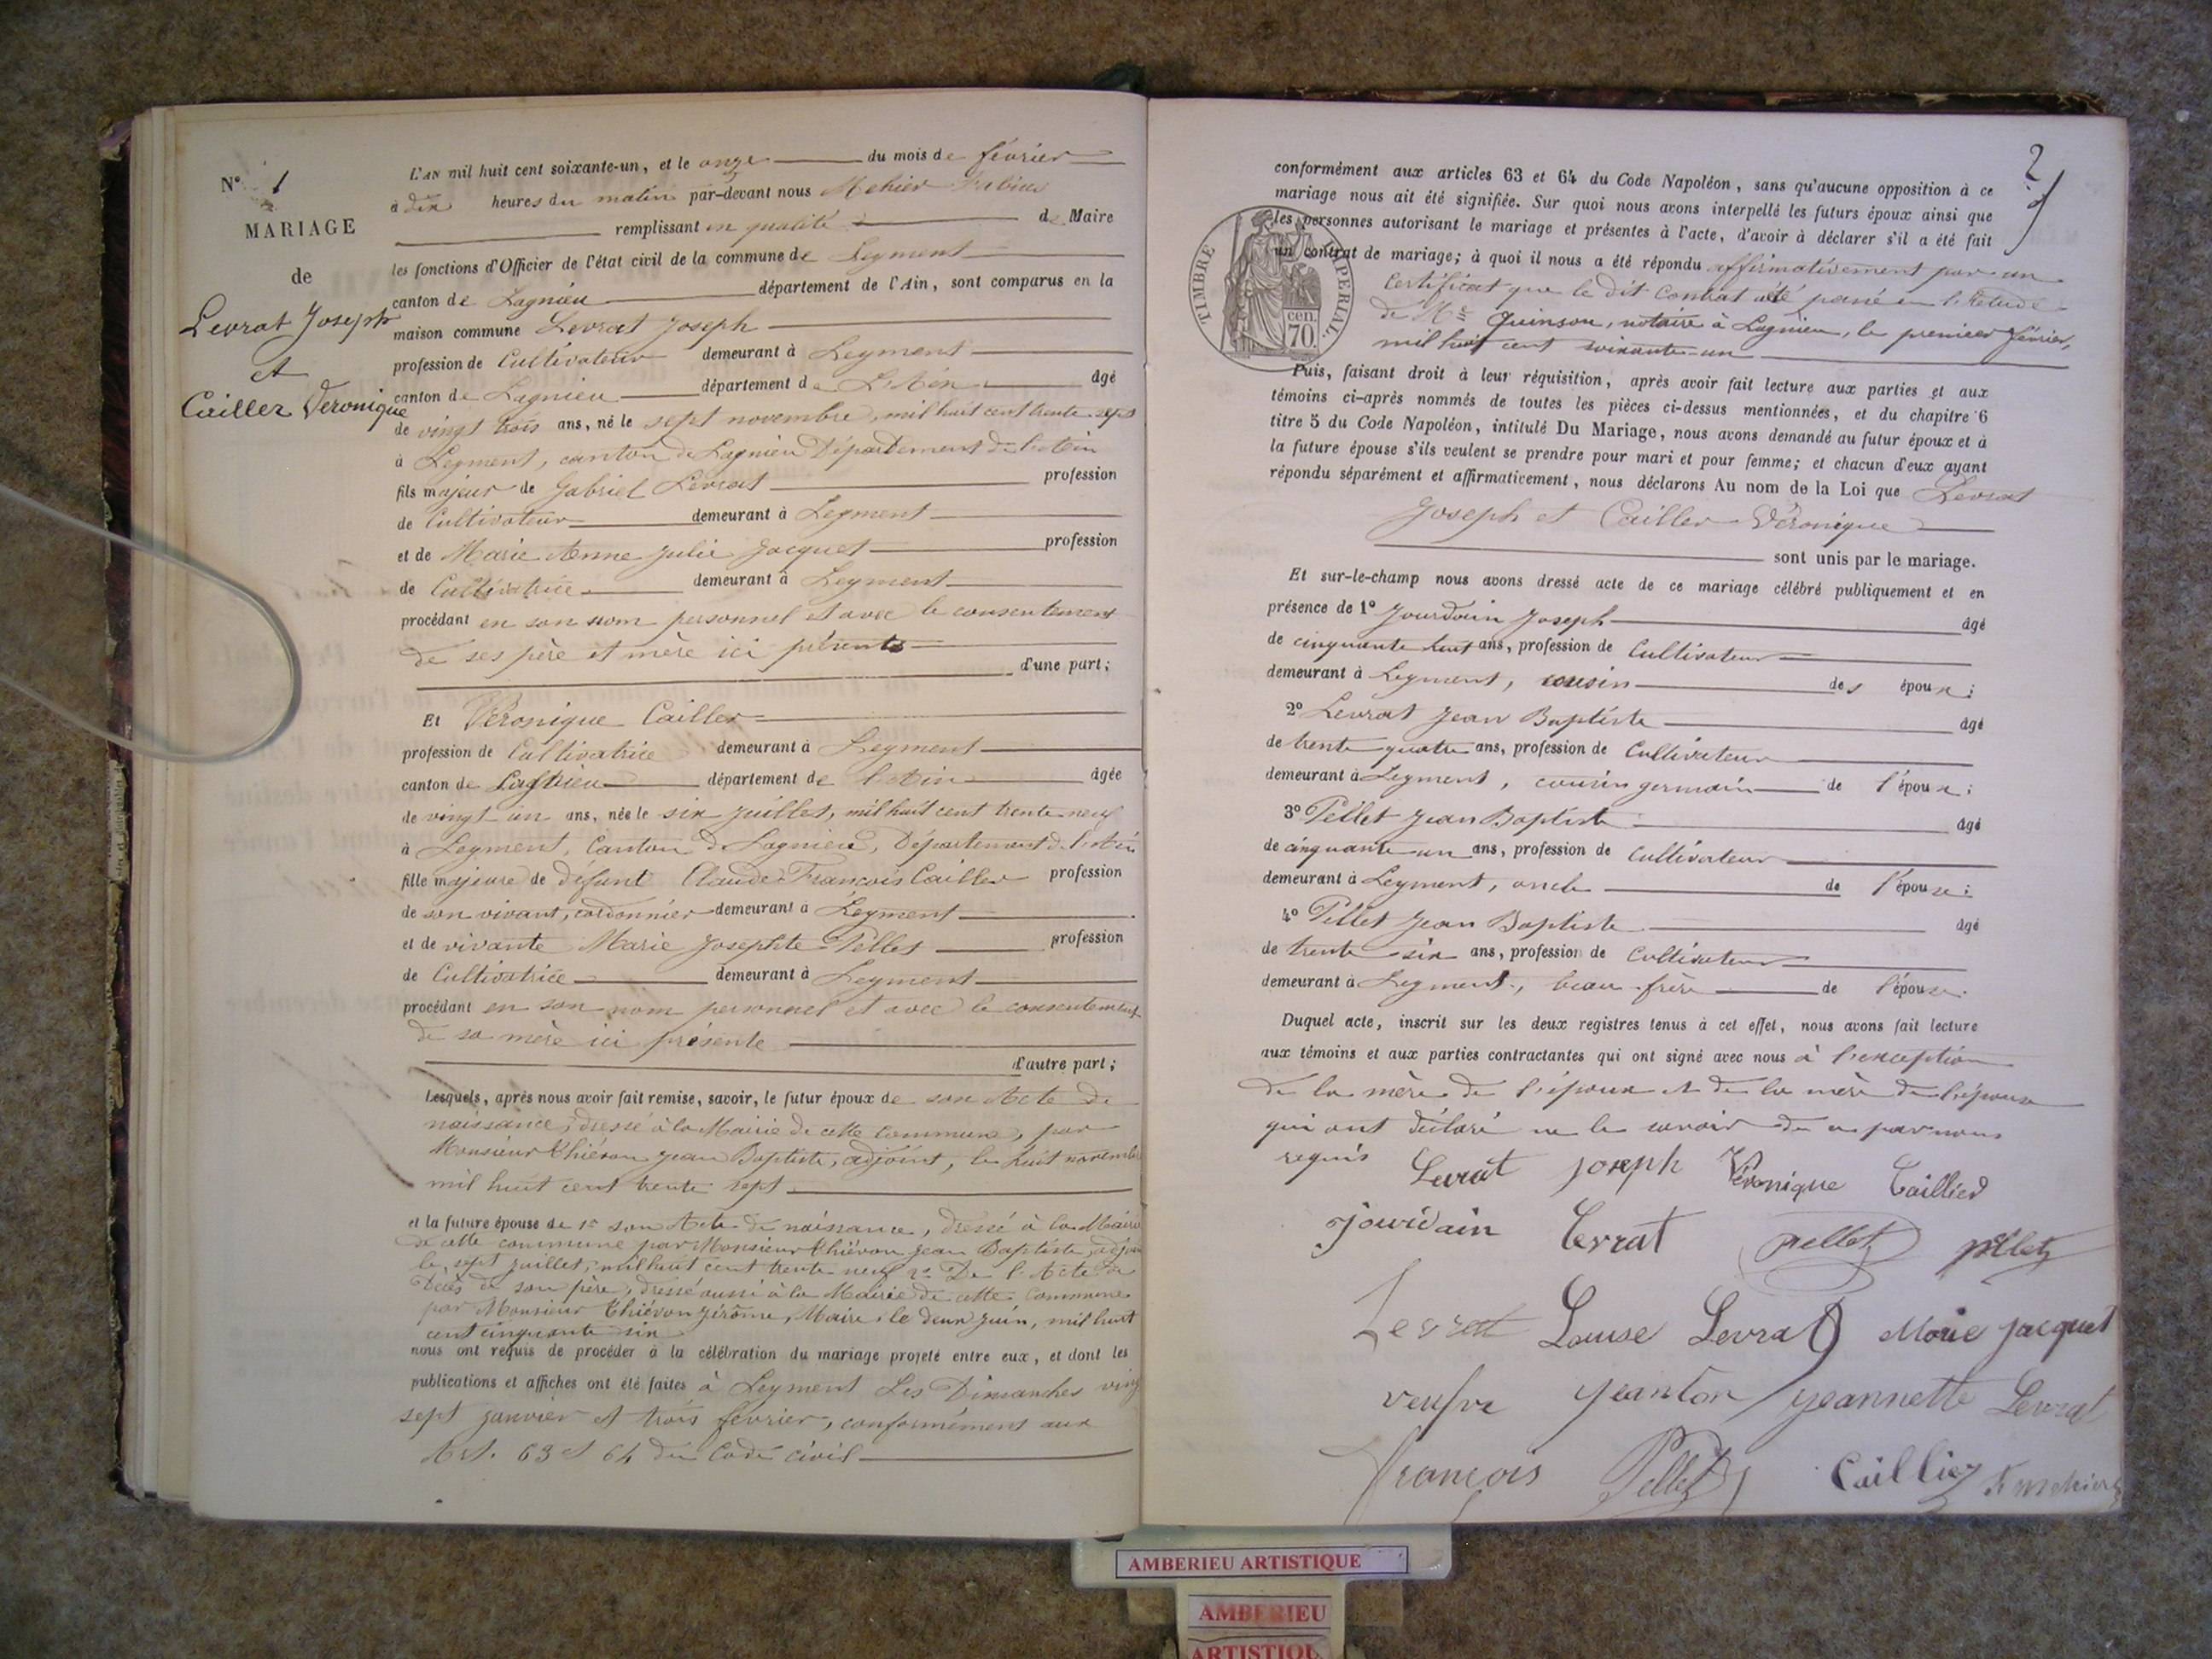 N° 1
MARIAGE
de
Levrat Joseph
et
Cailler Veronique
L'AN mil huit cent soixante-un, et le onze du mois de février
à dix heures du matin par-devant nous Mehier Fabius
remplissant en qualité de Maire
les fonctions d'Officier de l'état civil de la commune de Leyment
canton de Lagnieu département de l'Ain, sont comparus en la
maison commune Levrat Joseph
profession de Cultivateur demeurant à Leyment
canton de Lagnieu département de L'Ain âgé
de vingt trois ans, né le sept novembre, mil huit cent trente sept
à Leyment, canton de Lagnieu Département de l'Ain
fils majeur de Gabriel Levrat profession
de Cultivateur demeurant à Leyment
et de Marie Anne Julie Jacquet profession
de Cultivatrice demeurant à Leyment
procédant en son nom personnel et avec le consentement
de ses père et mère ici présents
d'une part;
Et Véronique Cailler
profession de Cultivatrice demeurant à Leyment
canton de Lagnieu département de l'Ain âgée
de vingt un ans, née le six Juillet, mil huit cent trente neuf
à Leyment, Canton de Lagnieu, Département de l'Ain
fille majeure de défunt Claude François Cailler profession
de son vivant, cordonnier demeurant à Leyment
et de vivante Marie Josephte Pellet profession
de Cultivatrice demeurant à Leyment
procédant en son nom personnel et avec le consentement
de sa mère ici présente
d'autre part;
Lesquels, après nous avoir fait remise, savoir, le futur époux de son Acte de
naissance, dressé à la Mairie de cette commune, par
Monsieur Thiévon Jean Baptiste, adjoint, le huit novembre
mil huit cent trente sept
et la future épouse de 1° son Acte de naissance, dressé à la Mairie
de cette commune par Monsieur Thiévon Jean Baptiste, adjoint
le sept juillet, mil huit cent trente neuf 2° De l'Acte de
Décès de son père, dressé aussi à la Mairie de cette Commune
par Monsieur Thiévon Jérôme, Maire, le deux Juin, mil huit
cent cinquante six
nous ont requis de procéder à la célébration du mariage projeté entre eux, et dont les
publications et affiches ont été faites à Leyment Les Dimanches vingt
sept janvier et trois février, conformément aux
Art. 63 et 64 du Code civil
2
conformément aux articles 63 et 64 du Code Napoléon, sans qu'aucune opposition à ce
mariage nous ait été signifiée. Sur quoi nous avons interpellé les futurs époux ainsi que
les personnes autorisant le mariage et présentes à l'acte, d'avoir à déclarer s'il a été fait
un contrat de mariage; à quoi il nous a été répondu affirmativement par un
TIMBRE IMPERIAL
70 cen.
Certificat que le dit Contrat a été passé en l'Etude
de Me Quinson, notaire à Lagnieu, le premier février,
mil huit cent soixante-un
Puis, faisant droit à leur réquisition, après avoir fait lecture aux parties et aux
témoins ci-après nommés de toutes les pièces ci-dessus mentionnées, et du chapitre 6
titre 5 du Code Napoléon, intitulé Du Mariage, nous avons demandé au futur époux et à
la future épouse s'ils veulent se prendre pour mari et pour femme; et chacun d'eux ayant
répondu séparément et affirmativement, nous déclarons Au nom de la Loi que Levrat
Joseph et Cailler Véronique
sont unis par le mariage.
Et sur-le-champ nous avons dressé acte de ce mariage célébré publiquement et en
présence de 1° Jourdain Joseph âgé
de cinquante huit ans, profession de Cultivateur
demeurant à Leyment, cousin des époux;
2° Levrat Jean Baptiste âgé
de trente quatre ans, profession de Cultivateur
demeurant à Leyment, cousin germain de l'époux;
3° Pellet Jean Baptiste âgé
de cinquante un ans, profession de Cultivateur
demeurant à Leyment, oncle de l'épouse;
4° Pellet Jean Baptiste âgé
de trente six ans, profession de Cultivateur
demeurant à Leyment, beau-frère de l'épouse.
Duquel acte, inscrit sur les deux registres tenus à cet effet, nous avons fait lecture
aux témoins et aux parties contractantes qui ont signé avec nous à l'exception
de la mère de l'époux et de la mère de l'épouse
qui ont déclaré ne le savoir de ce par nous
requis
Levrat joseph Véronique Caillier
jourdain Levrat pellet pellet
Levrat Louise Levrat Marie jacquet
veuve jeanton jeannette Levrat
françois Pellet Caillier F mehier
AMBERIEU ARTISTIQUE
AMBERIEU
ARTISTIQU